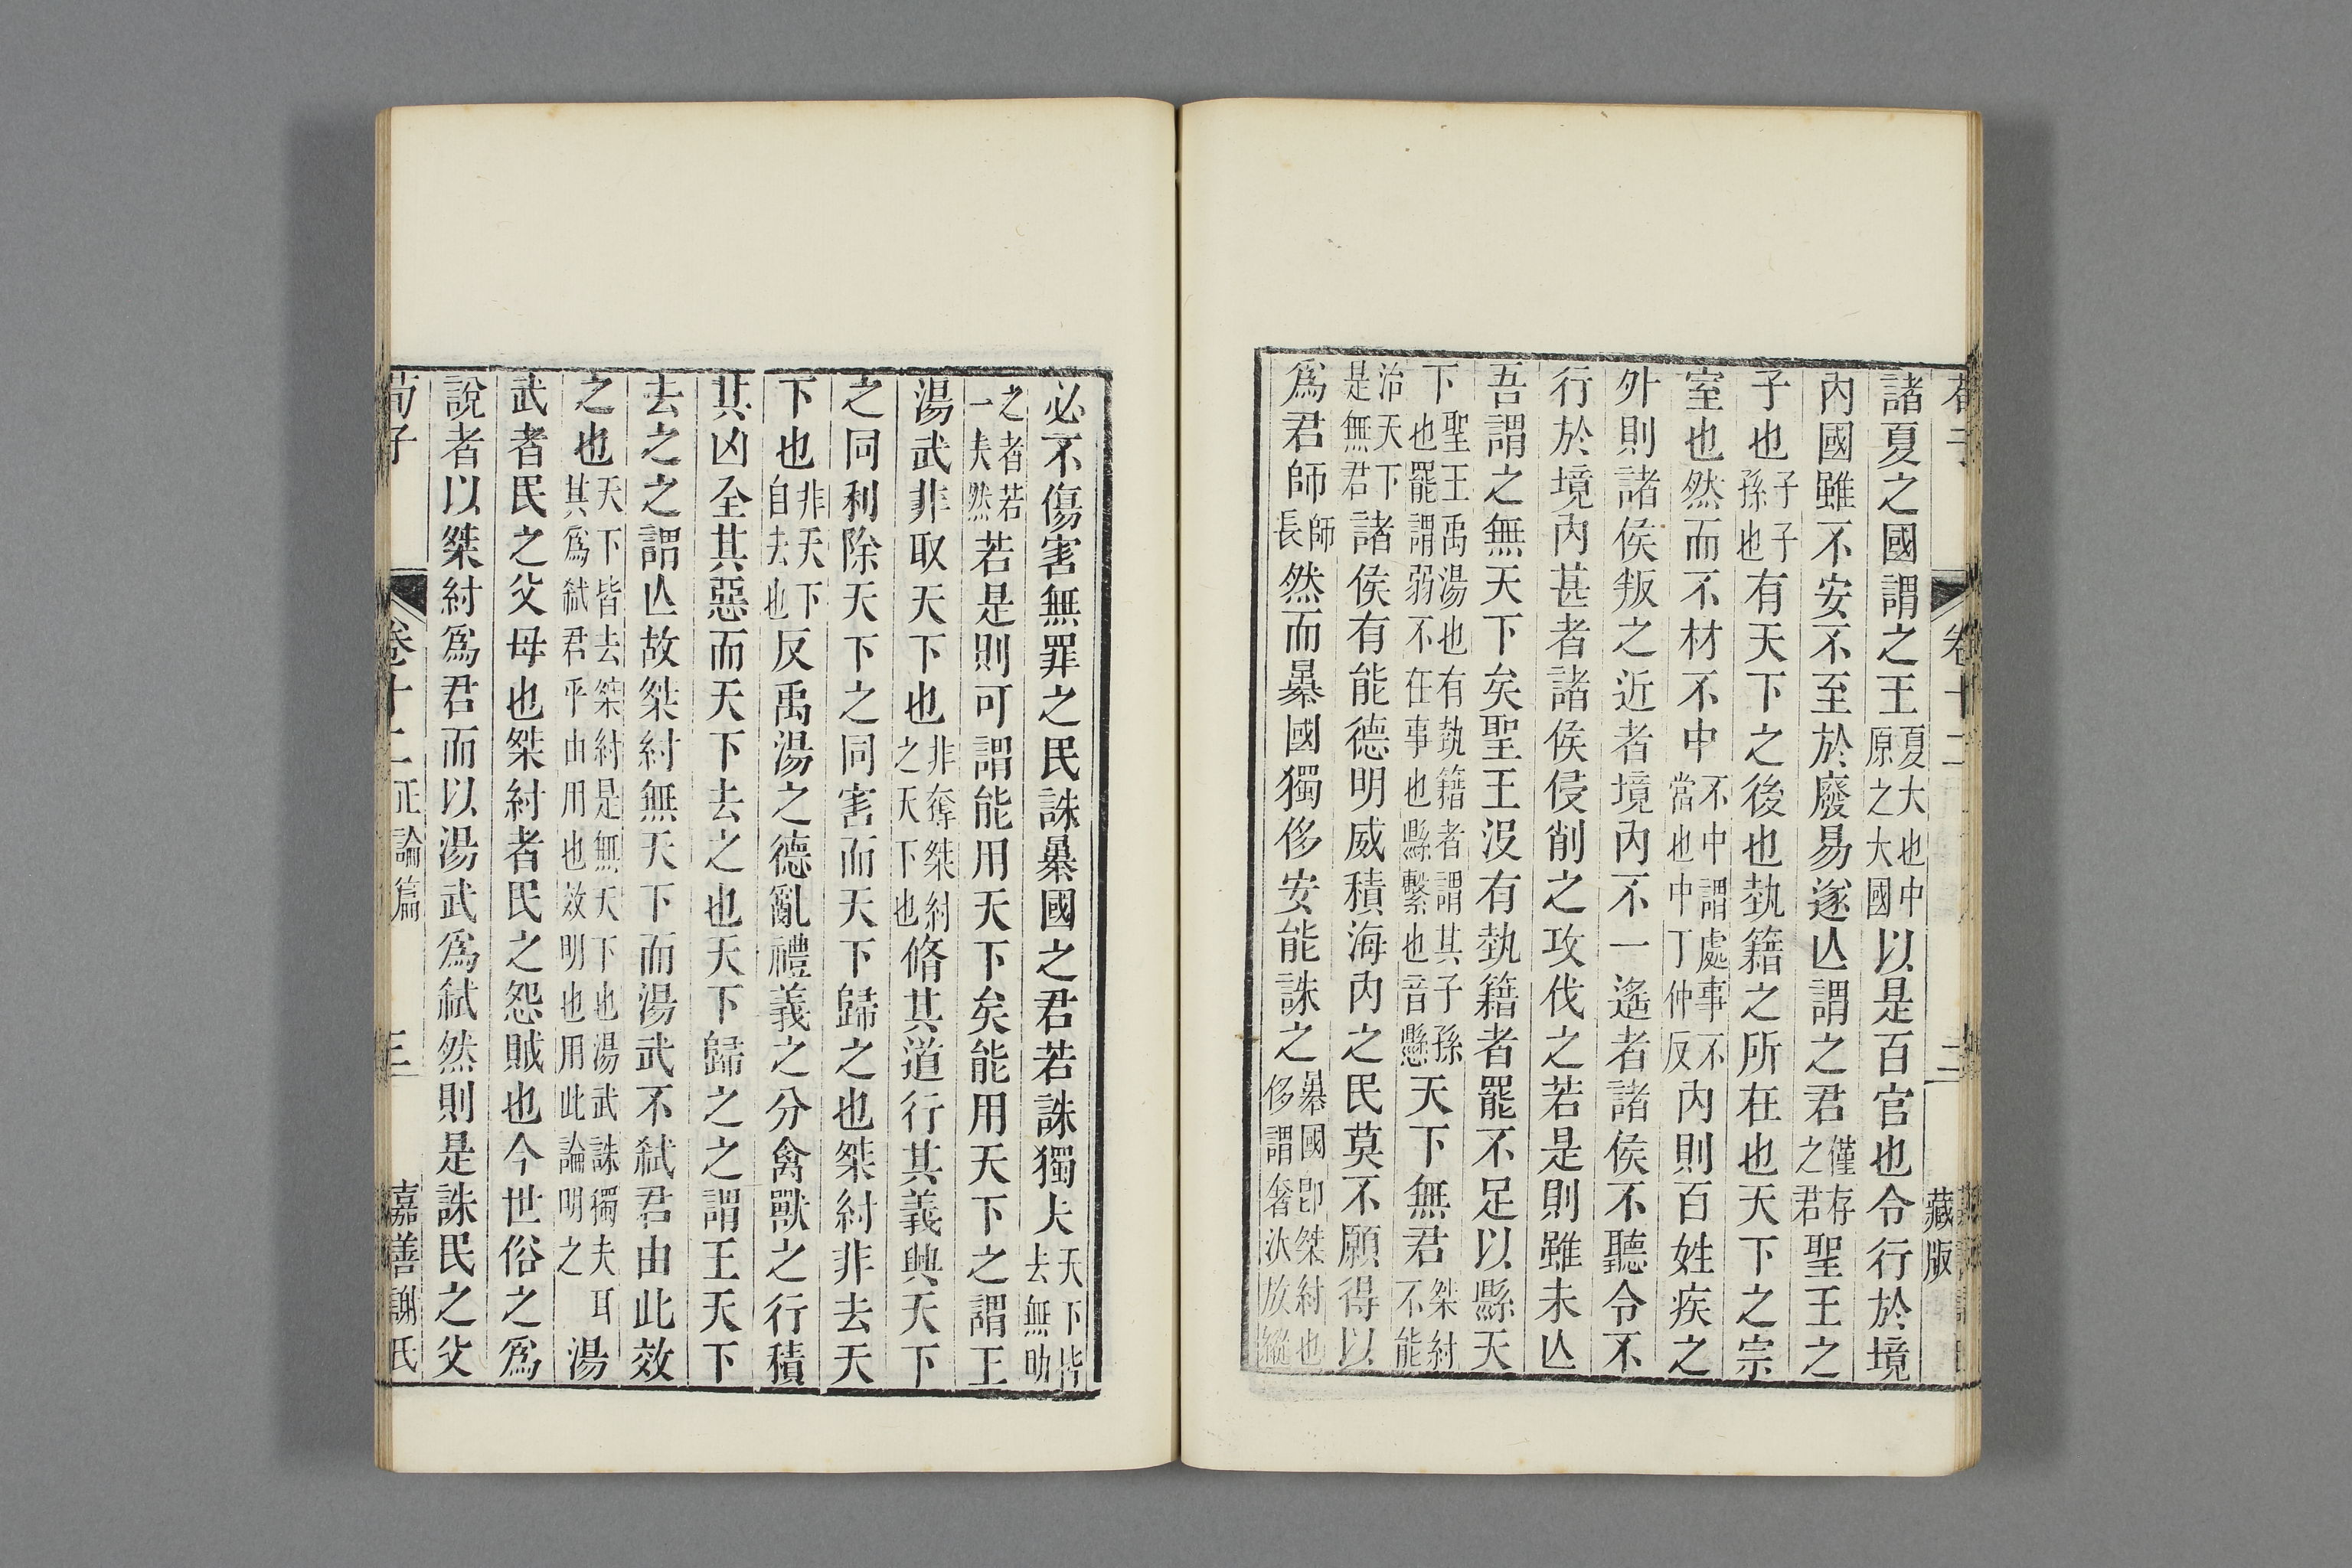 諸夏之國謂之王夏大也中原之大國以是百官也令行於境
內國雖不安不至於廢易遂亾謂之君僅存之君聖王之
子也子子子孫也有天下之後也埶籍之所在也天下之宗
室也然而不材不中不中謂處事不當也中丁仲反內則百姓疾之
外則諸侯叛之近者境內不一遙者諸侯不聽令不
行於境內甚者諸侯侵削之攻伐之若是則雖未亾
吾謂之無天下矣聖王沒有埶籍者罷不足以縣天
下聖王禹湯也有埶籍者謂其子孫也罷謂弱不在事也縣繫也音懸天下無君桀紂不能
治天下是無君諸侯有能德明威積海內之民莫不願得以
爲君師師長然而暴國獨侈安能誅之暴國即桀紂也侈謂奢汏放縱
藏版
必不傷害無罪之民誅暴國之君若誅獨夫天下皆去無助
之者若一夫然若是則可謂能用天下矣能用天下之謂王
湯武非取天下也非奪桀紂之天下也脩其道行其義興天下
之同利除天下之同害而天下歸之也桀紂非去天
下也非天下自去也反禹湯之德亂禮義之分禽獸之行積
其凶全其惡而天下去之也天下歸之之謂王天下
去之之謂亾故桀紂無天下而湯武不弒君由此效
之也天下皆去桀紂是無天下也湯武誅獨夫耳其爲弒君乎由用也效明也用此論明之湯
武者民之父母也桀紂者民之怨賊也今世俗之爲
說者以桀紂爲君而以湯武爲弒然則是誅民之父
荀子 卷十二正論篇 三 嘉善謝氏